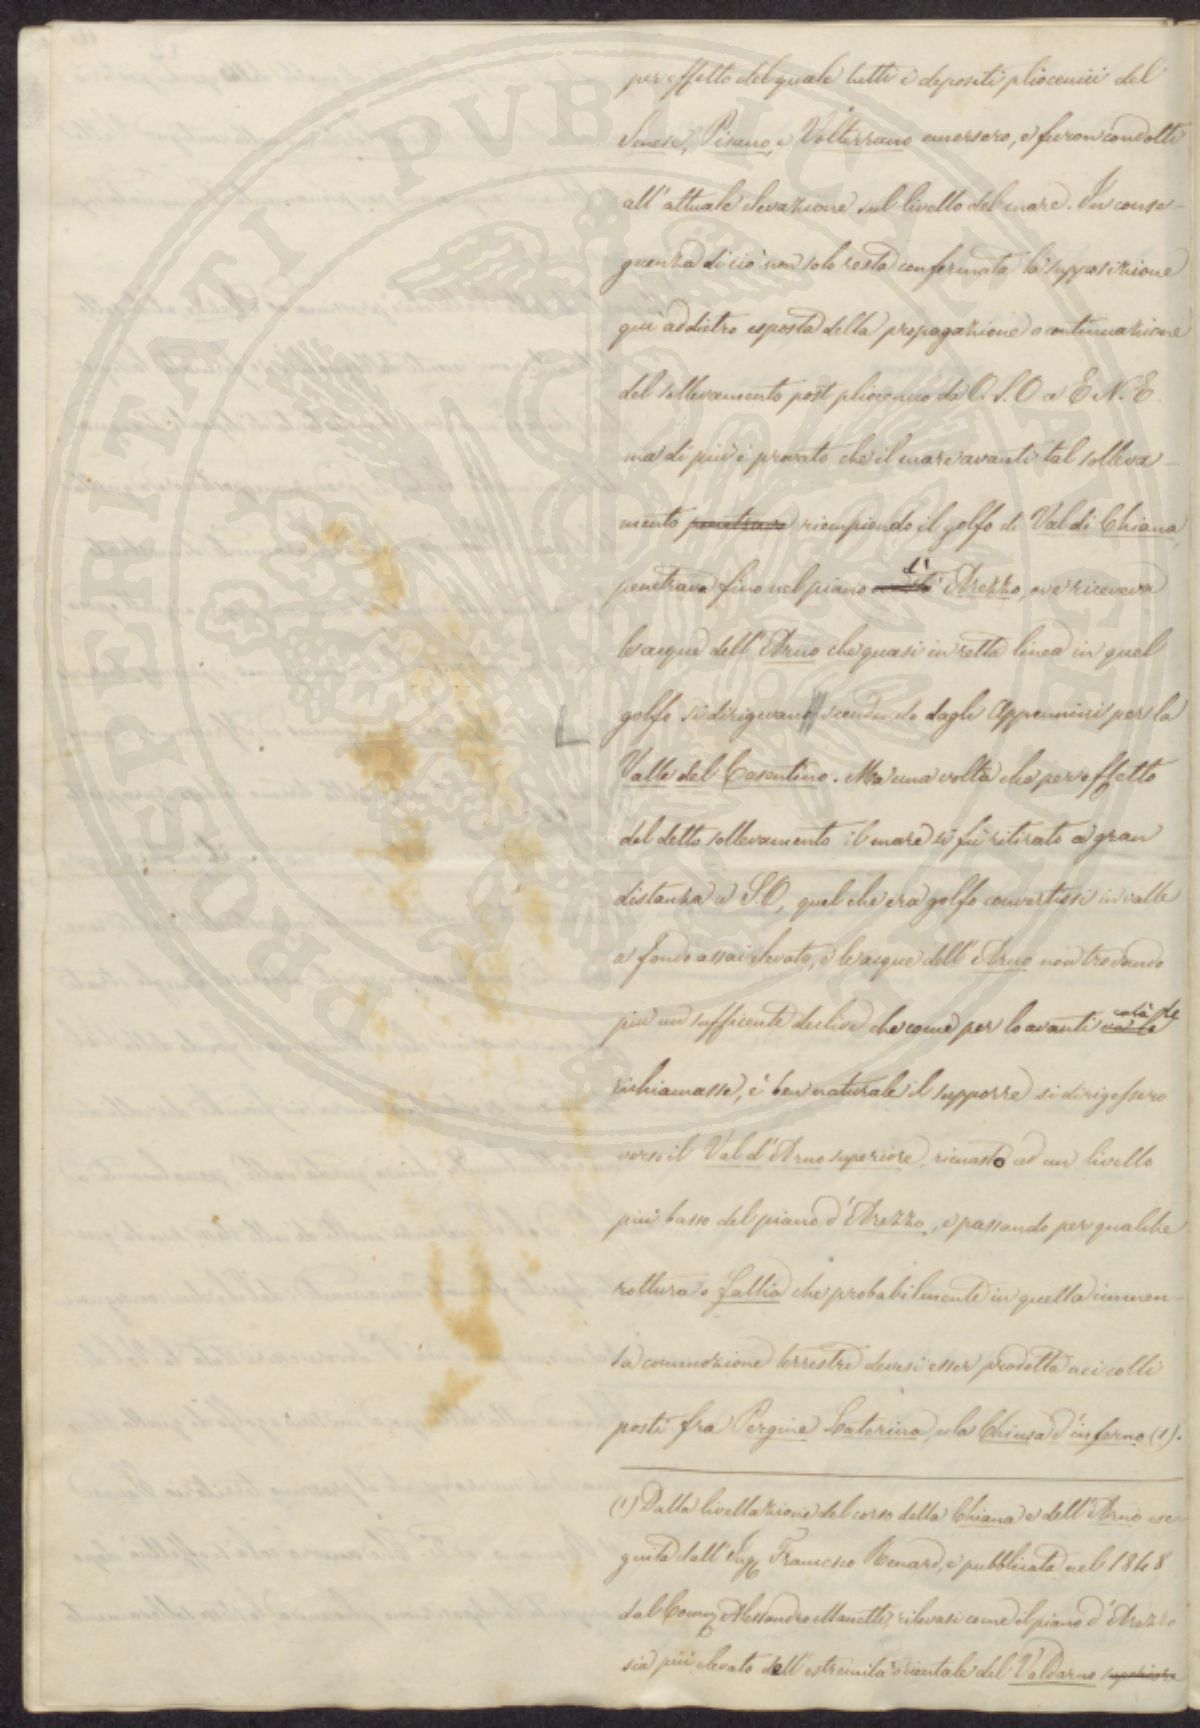 per effetto del quale tutti i depositi pliocenici del
Senese, Pisano, e Volterrano emersero, e furon condotti
all'attuale elevazione sul livello del mare. In conse-
guenza di ciò non solo resta confermata la supposizione
qui addietro esposta della propagazione o continuazione
del sollevamento post pliocenico da O.S.O a E.N.E.
ma di più è provato che il mare avanti tal solleva-
mento penetrava riempiendo il golfo di Val di Chiana,
penetrava fino nel piano d'Arezzo, ove riceveva
le acque dell'Arno che quasi in retta linea in quel
golfo si dirigevano scendendo dagli Appennini per la
Valle del Casentino. Ma una volta che per effetto
del detto sollevamento il mare si fu ritirato a gran
distanza a S.O, quel che era golfo convertissi in valle
a fondo assai elevato, e le acque dell'Arno non trovando
più un sufficente declive che come per lo avanti colà le
richiamasse, è ben naturale il supporre si dirigessero
verso il Val d'Arno superiore, rimasto ad un livello
più basso del piano d'Arezzo, e passando per qualche
rottura o fallia che probabilmente in quella immen-
sa commozione terrestre devesi esser prodotta nei colli
posti fra Pergine Laterina, e la Chiusa d'inferno (1).
(1) Dalla livellazione del corso della Chiana e dell'Arno ese-
guita dall'Ing. Francesco Renard, e pubblicata nel 1848
dal Comm. Alessandro Manetti, rilevasi come il piano d'Arezzo
sia più elevato dell'estremità orientale del Valdarno superiore
PROSPERITATI PUBLICAE